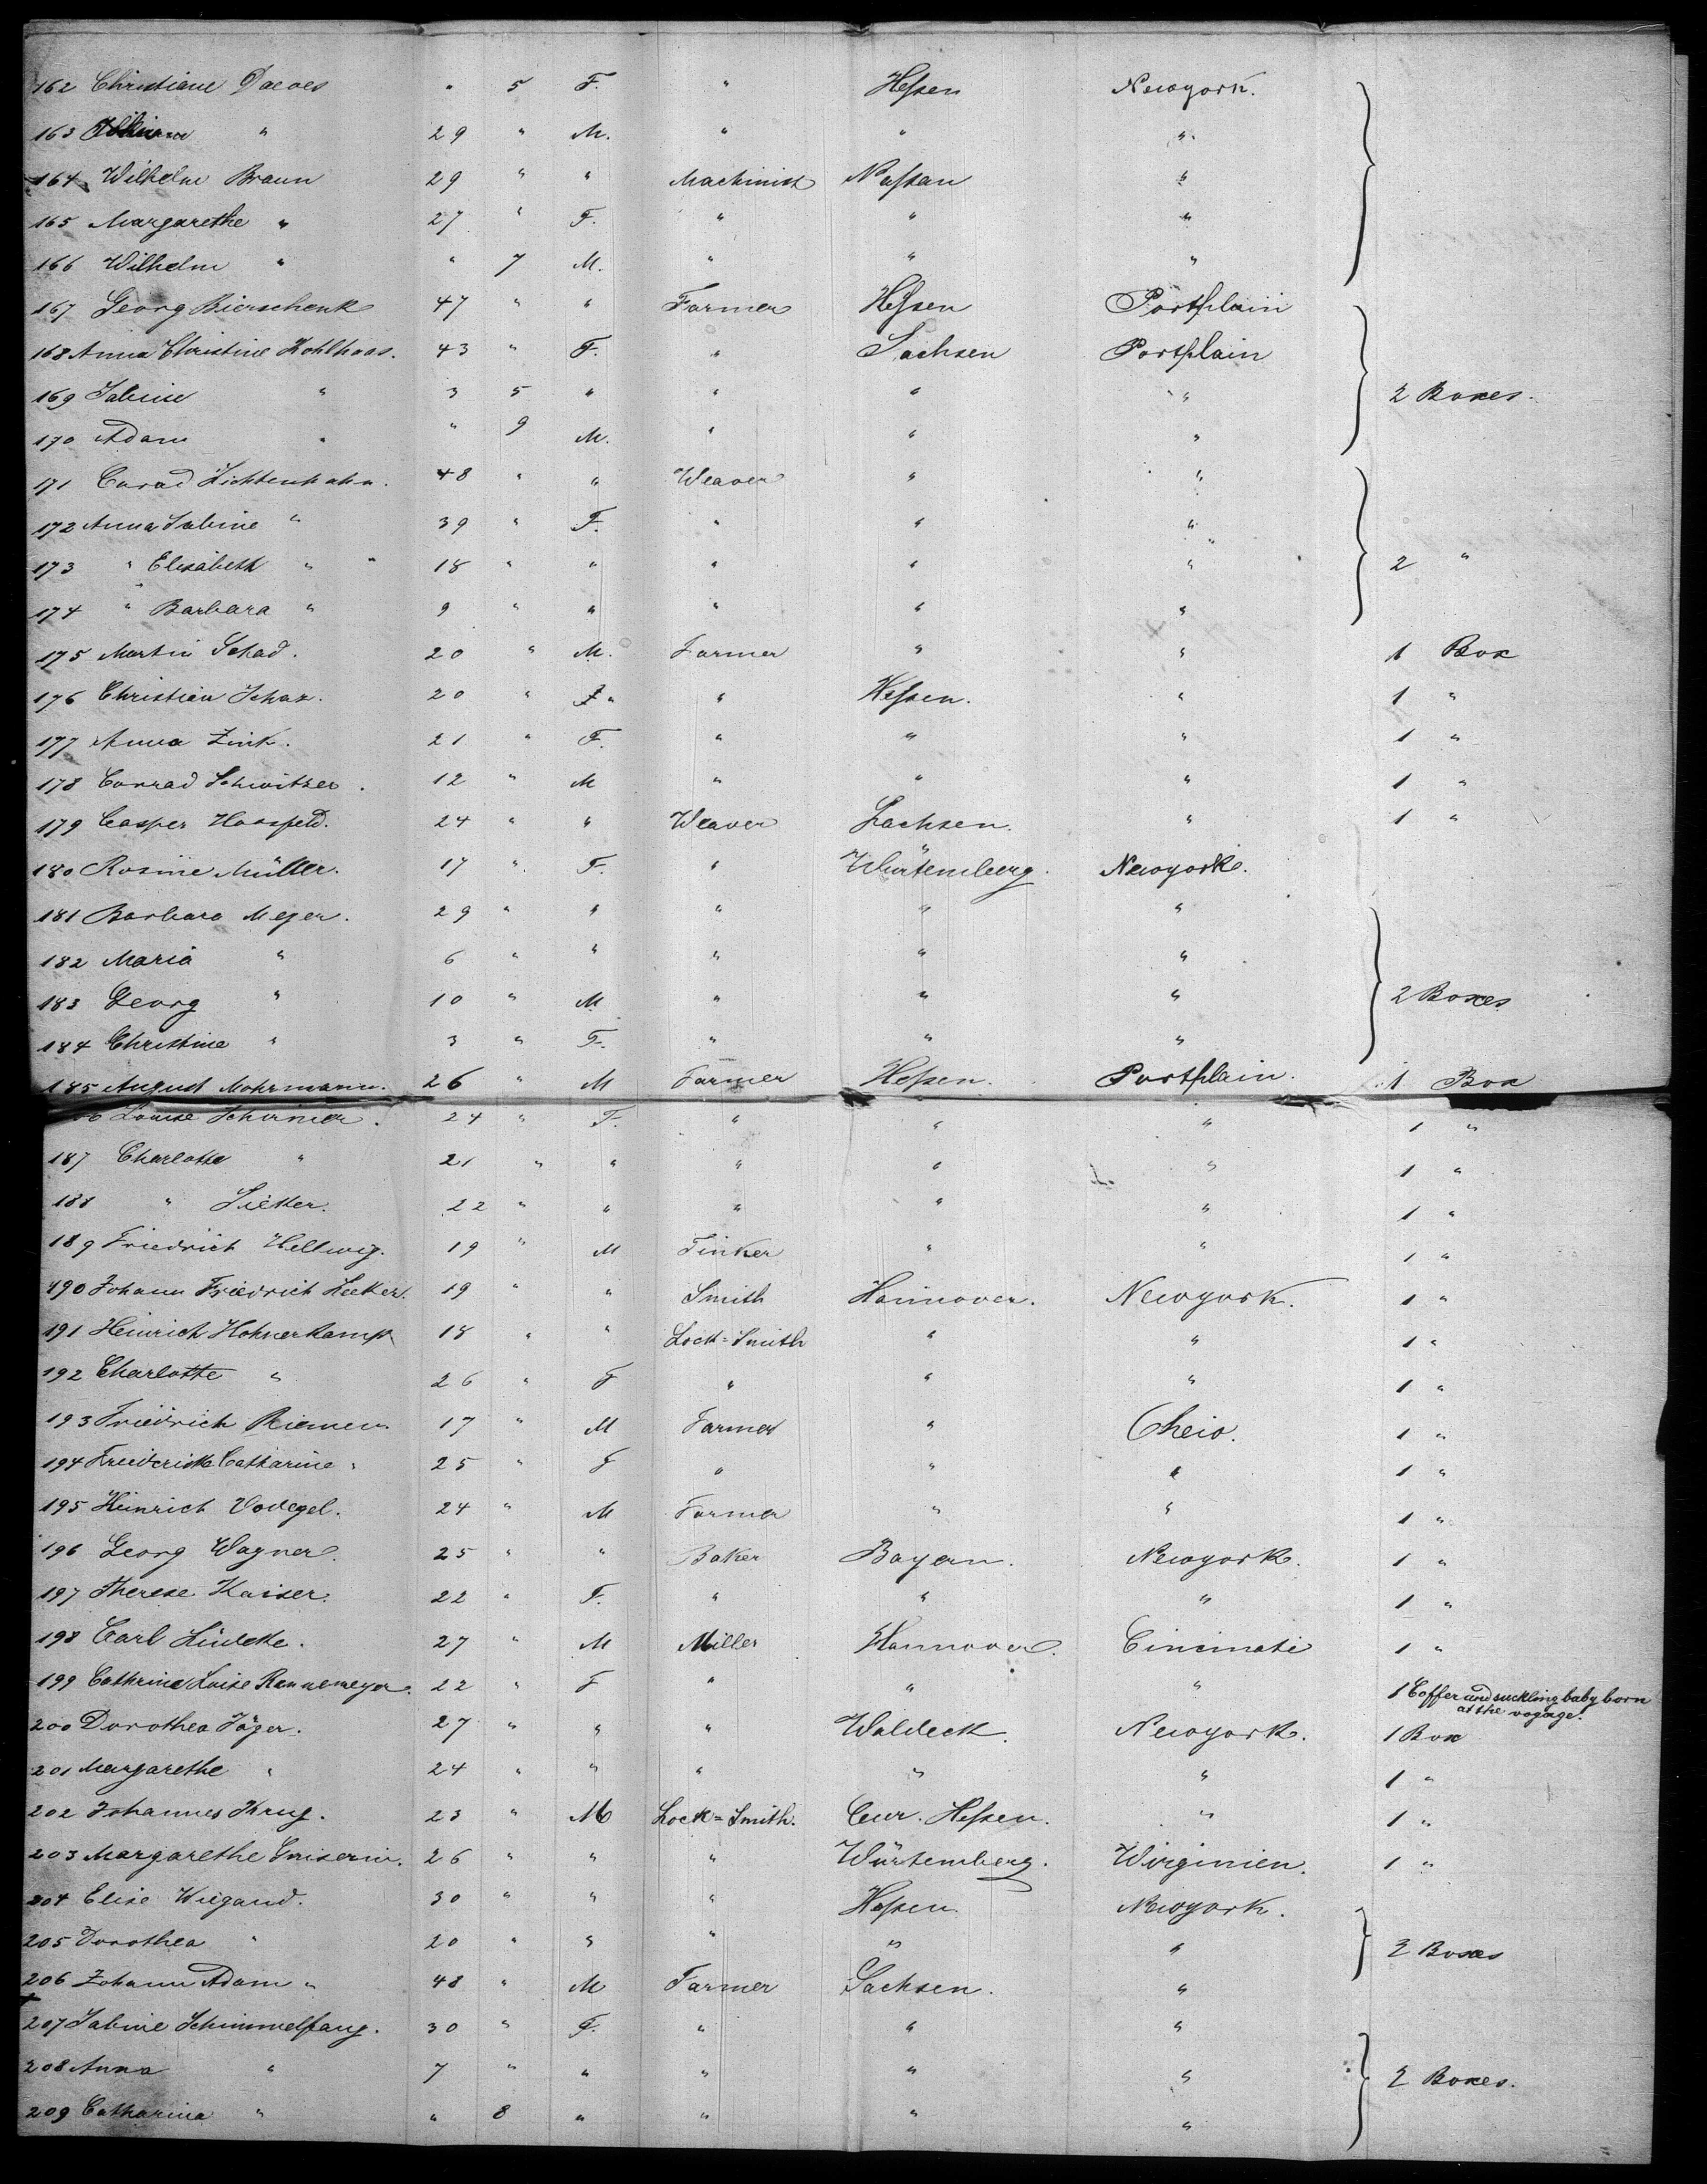 162 Christiane Daeves " 5 F. " Hessen Newyork.
163 " 29 " M. " " "
164 Wilhelm Braun 29 " " Machinist Nassau "
165 Margarethe " 27 " F. " " "
166 Wilhelm " " 7 M. " " "
167 Georg Bierschenk 47 " " Farmer Hessen Portplain
168 Anna Christine Kohlhaas. 43 " F. " Sachsen Portplain
169 Sabine " 3 5 " " " " 2 Boxes.
170 Adam " " 9 M. " " "
171 Conrad Lichtenhahn. 48 " " Weaver " "
172 Anna Sabine " 39 " F. " " "
173 " Elisabeth " " 18 " " " " " 2 "
174 " Barbara " 9 " " " " "
175 Martin Schad. 20 " M. Farmer " " 1 Box
176 Christian Schaz. 20 " " " Hessen. " 1 "
177 Anna Zink. 21 " F. " " " 1 "
178 Conrad Schwitzer. 12 " M " " " 1 "
179 Casper Haasfeld. 24 " " Weaver Sachsen. " 1 "
180 Rosine Müller. 17 " F. " Würtemberg. Newyork.
181 Barbara Meyer. 29 " " " " "
182 Maria " 6 " " " " "
183 Georg " 10 " M " " " 2 Boxes
184 Christine " 3 " F. " " "
185 August Mohrmann. 26 " M Farmer Hessen. Portplain. 1 Box
Louise Schirmer. 24 " F. " " " 1 "
187 Charlotte " 21 " " " " " 1 "
188 " Sieker. 22 " " " " " 1 "
189 Friedrich Hellwig. 19 " M Tinker " " 1 "
190 Johann Friedrich Lecker. 19 " " Smith Hannover. Newyork. 1 "
191 Heinrich Hohnerkamp 18 " " Lock=Smith " " 1 "
192 Charlotte " 26 " F " " " 1 "
193 Friedrich Riemer. 17 " M Farmer " Oheio. 1 "
194 Friederick Catharine " 25 " F " " " 1 "
195 Heinrich Vodegel. 24 " M Farmer " " 1 "
196 Georg Wagner. 25 " " Baker Bayern. Newyork. 1 "
197 Therese Kaiser. 22 " F. " " " 1 "
198 Carl Lüdeke. 27 " M Miller Hannover. Cincinati 1 "
199 Cathrine Luise Rannemeyer. 22 " F " " " 1 Coffer and suckling baby born
at the voyage.
200 Dorothea Jäger. 27 " " " Waldeck. Newyork. 1 Box
201 Margarethe " 24 " " " " " 1 "
202 Johannes Krug. 23 " M Lock=Smith. Cur. Hessen. " 1 "
203 Margarethe Gniserin. 26 " " " Würtemberg. Wirginien. 1 "
204 Elise Wiegand. 30 " " " Hessen. Newyork.
205 Dorothea " 20 " " " " " 2 Boxes
206 Johann Adam " 48 " M Farmer Sachsen. "
207 Sabine Schimmelfang. 30 " F. " " "
208 Anna " 7 " " " " " 2 Boxes.
209 Catharina " " 8 " " " "